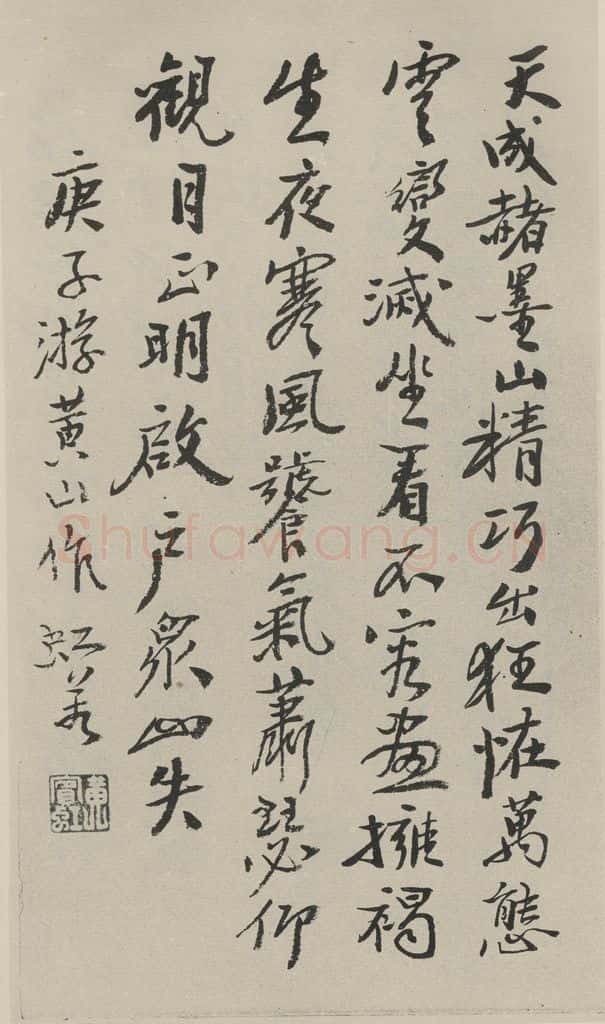 天成赭墨山精巧出狂恠萬態
雲變滅坐看不容畫擁褐
生夜寒風饕氣蕭瑟仰
觀月正明啟户衆山失
庚子游黃山作 虹
黃賓虹
Shufawang.CN